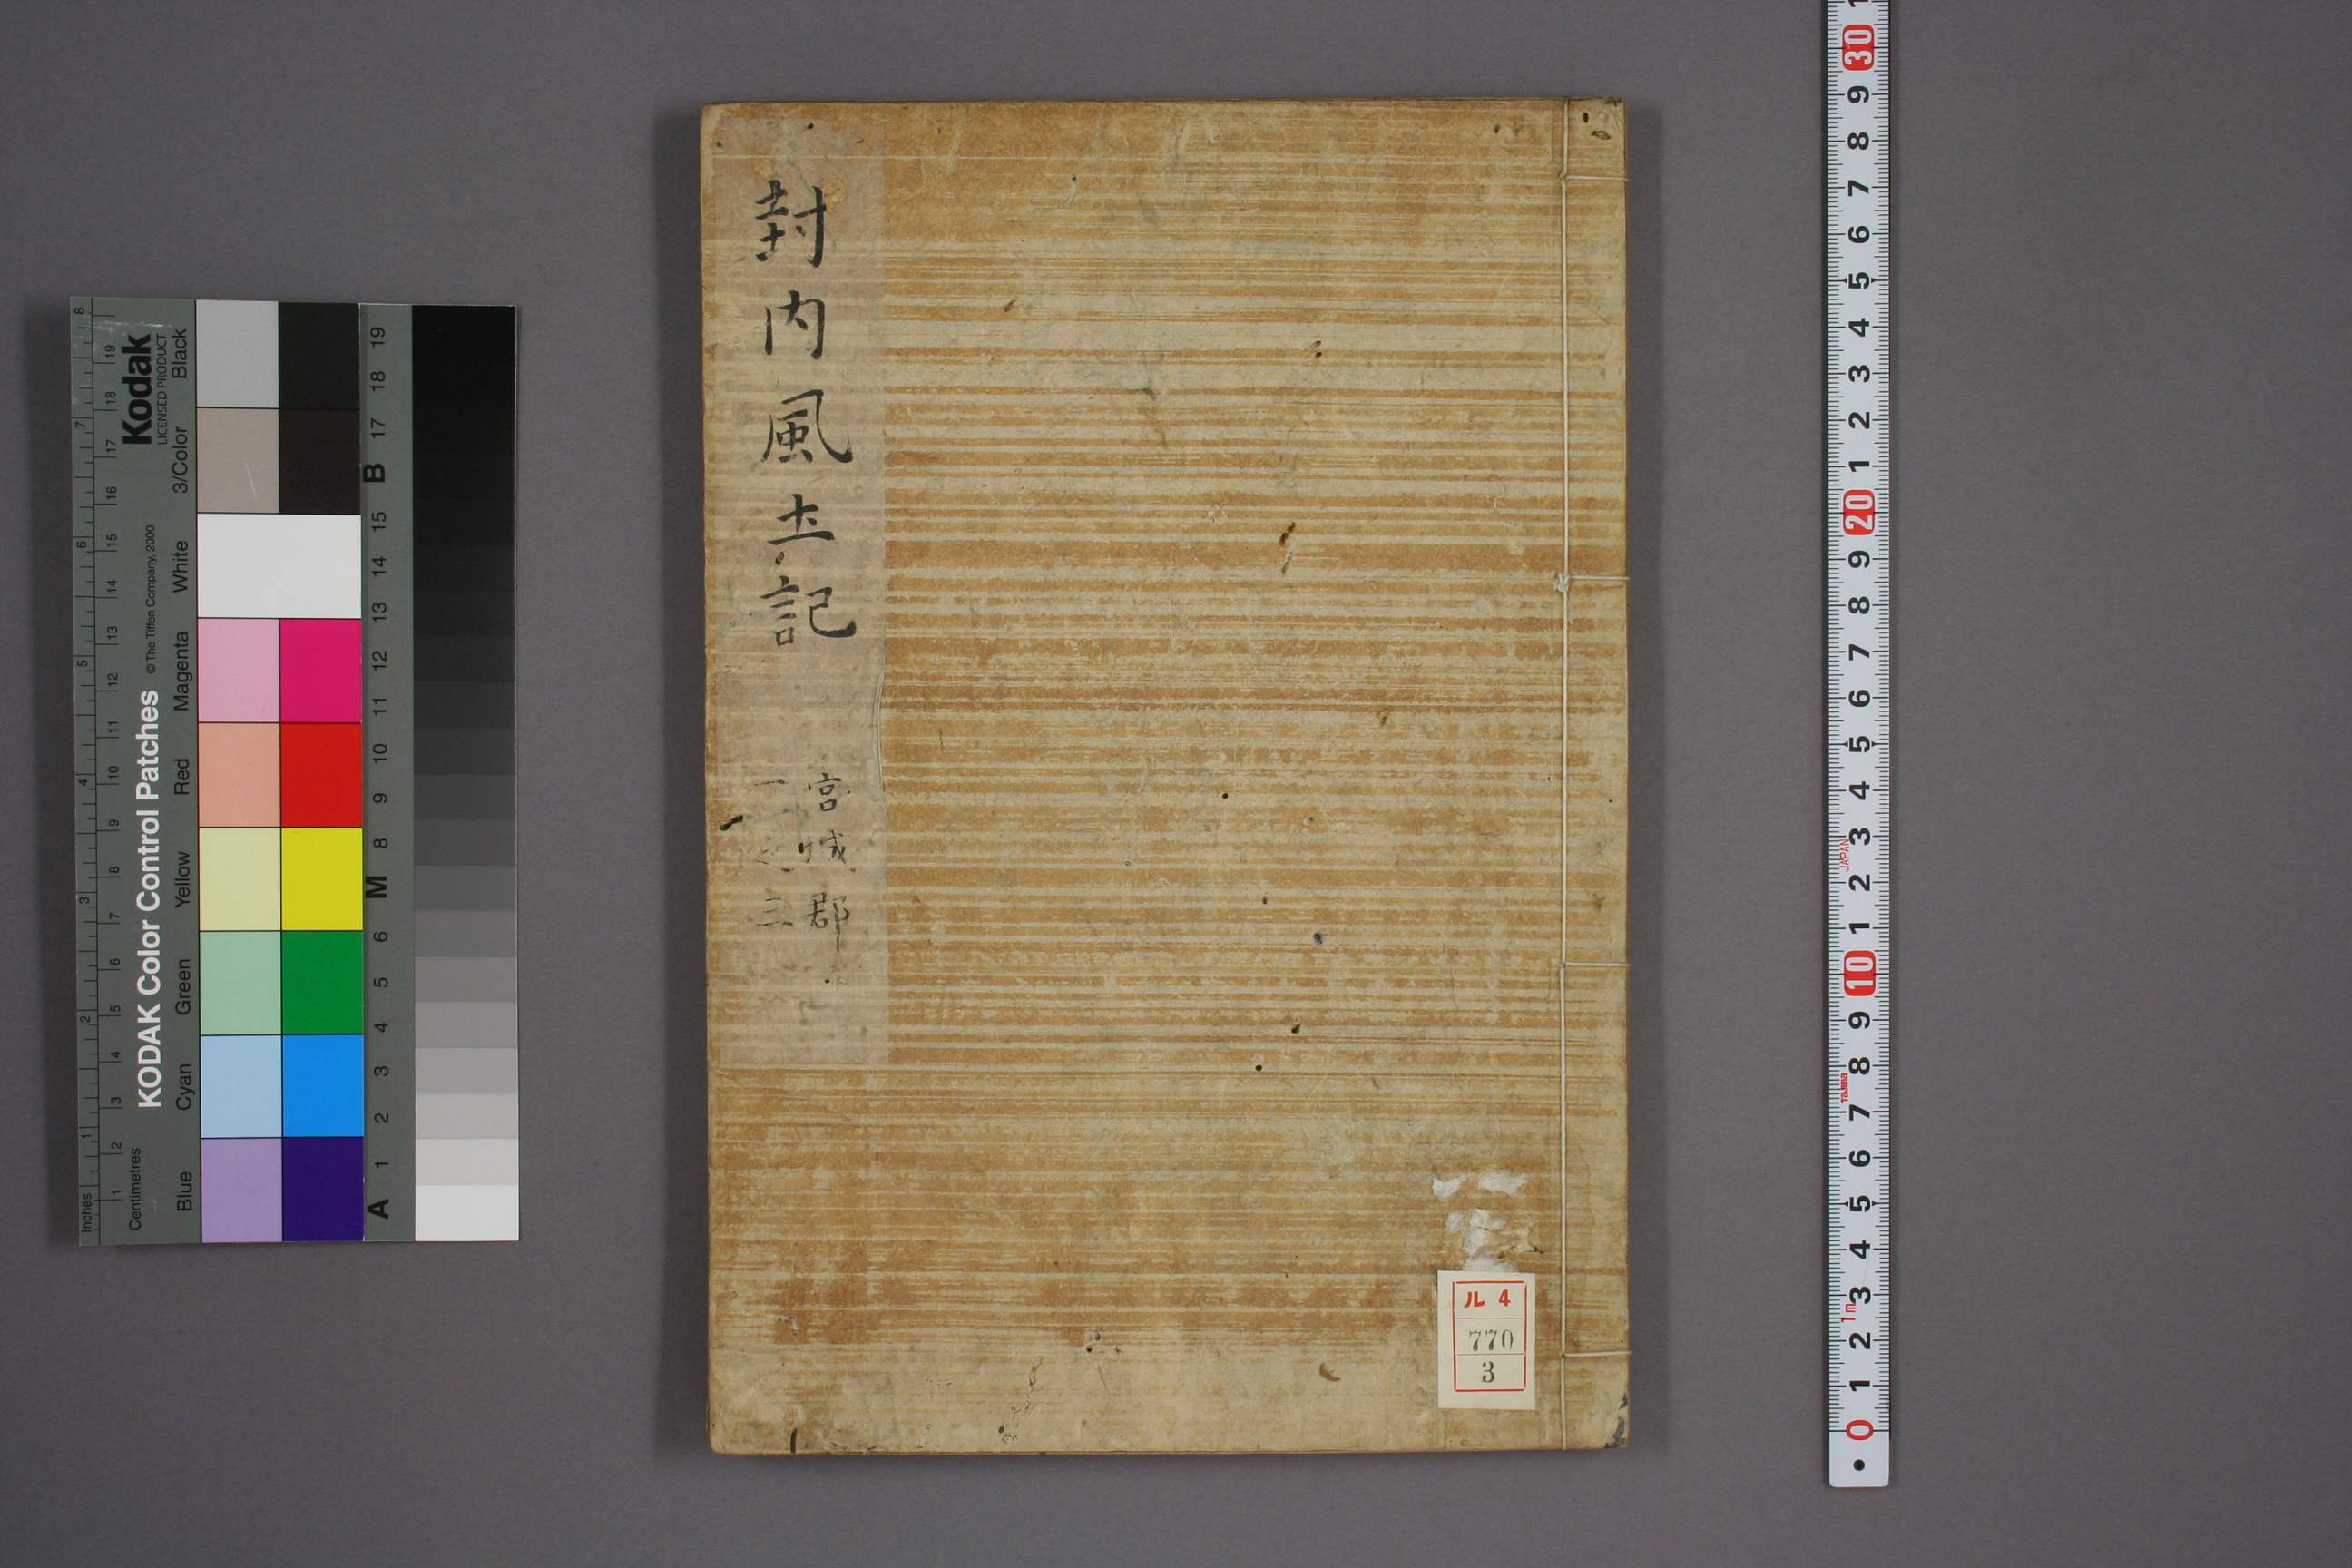 封内風土記
宮城郡
三
ル 4
770
3
KODAK Color Control Patches
© The Tiffen Company, 2000
Kodak
LICENSED PRODUCT
Inches
1 2 3 4 5 6 7 8
Centimetres
1 2 3 4 5 6 7 8 9 10 11 12 13 14 15 16 17 18 19
Blue Cyan Green Yellow Red Magenta White 3/Color Black
A 1 2 3 4 5 6 M 8 9 10 11 12 13 14 15 B 17 18 19
0 1 2 3 4 5 6 7 8 9 10 1 2 3 4 5 6 7 8 9 20 1 2 3 4 5 6 7 8 9 30 1
1m
Tajima
JAPAN